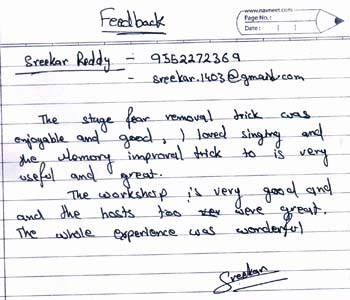 www.navneet.com
Page No. :
Date :
Feedback
Sreekar Reddy - 9552272369
- sreekar.1403@gmail.com
The stage fear removal trick was
enjoyable and good, I loved singing and
the Memory improval trick to is very
useful and great.
The workshop is very good and
and the hosts too were great.
The whole experience was wonderful
Sreekar